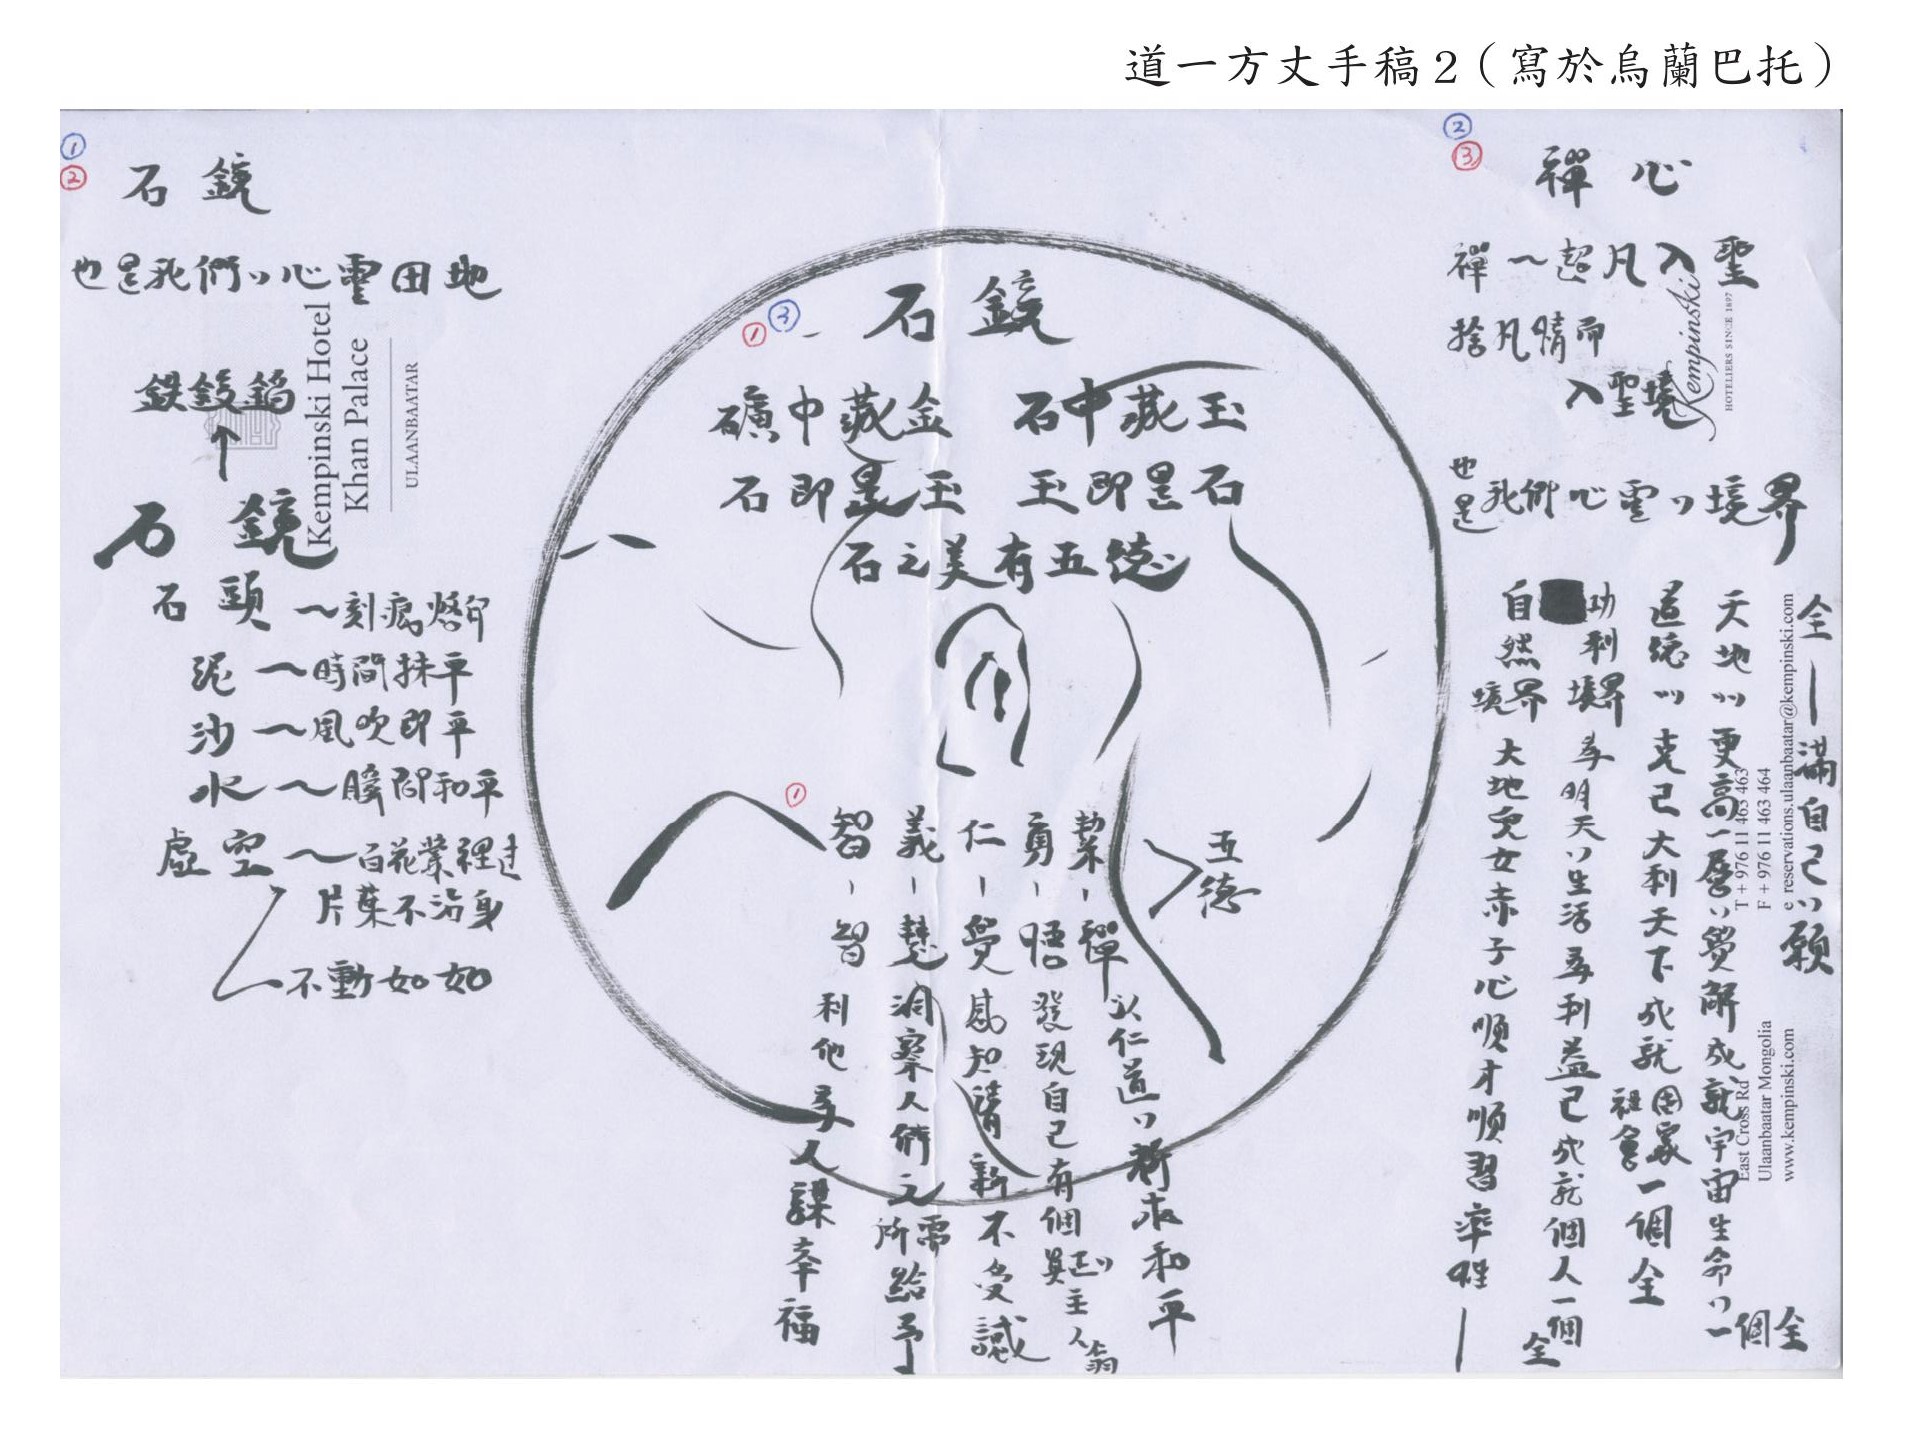 道一方丈手稿2（寫於烏蘭巴托）
①
②
石鏡
也是我們い心靈田地
石鏡
石頭～刻痕烙印
泥～時間抹平
沙～風吹即平
水～瞬間和平
虛空～百花葉裡過
片葉不沾身
不動如如
Kempinski Hotel
Khan Palace
ULAANBAATAR
①
③
石鏡
礦中藏金 石中藏玉
石即是玉 玉即是石
石之美有五德
五德
絜－禪 以仁道い祈求和平
勇－悟 發現自己有個真正い主人翁
仁－覺 感知情新不受誡
義－慧 洞察人們之所需給予
①
智－智 利他為人謀幸福
②
③
禪心
禪～超凡入聖
捨凡情而
入聖境
也是我們心靈い境界
全－滿自己い願
天地い更高一層い覺解成就宇宙生命い一個全
道德い克己大利天下成就國家社會一個全
功利境界 為明天い生活為利益己成就個人一個全
自然境界 大地兒女赤子心順才順習率性－
Kempinski
HOTELIERS SINCE 1897
East Cross Rd
Ulaanbaatar Mongolia
www.kempinski.com
T + 976 11 463 463
F + 976 11 463 464
e reservations.ulaanbaatar@kempinski.com